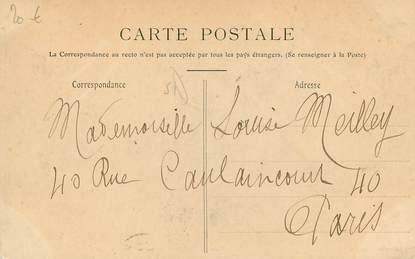 20 €
CARTE POSTALE
La Correspondance au recto n'est pas acceptée par tous les pays étrangers. (Se renseigner à la Poste)
Correspondance
Adresse
Mademoiselle Louise Meilley
40 Rue Caulaincourt 40
Paris